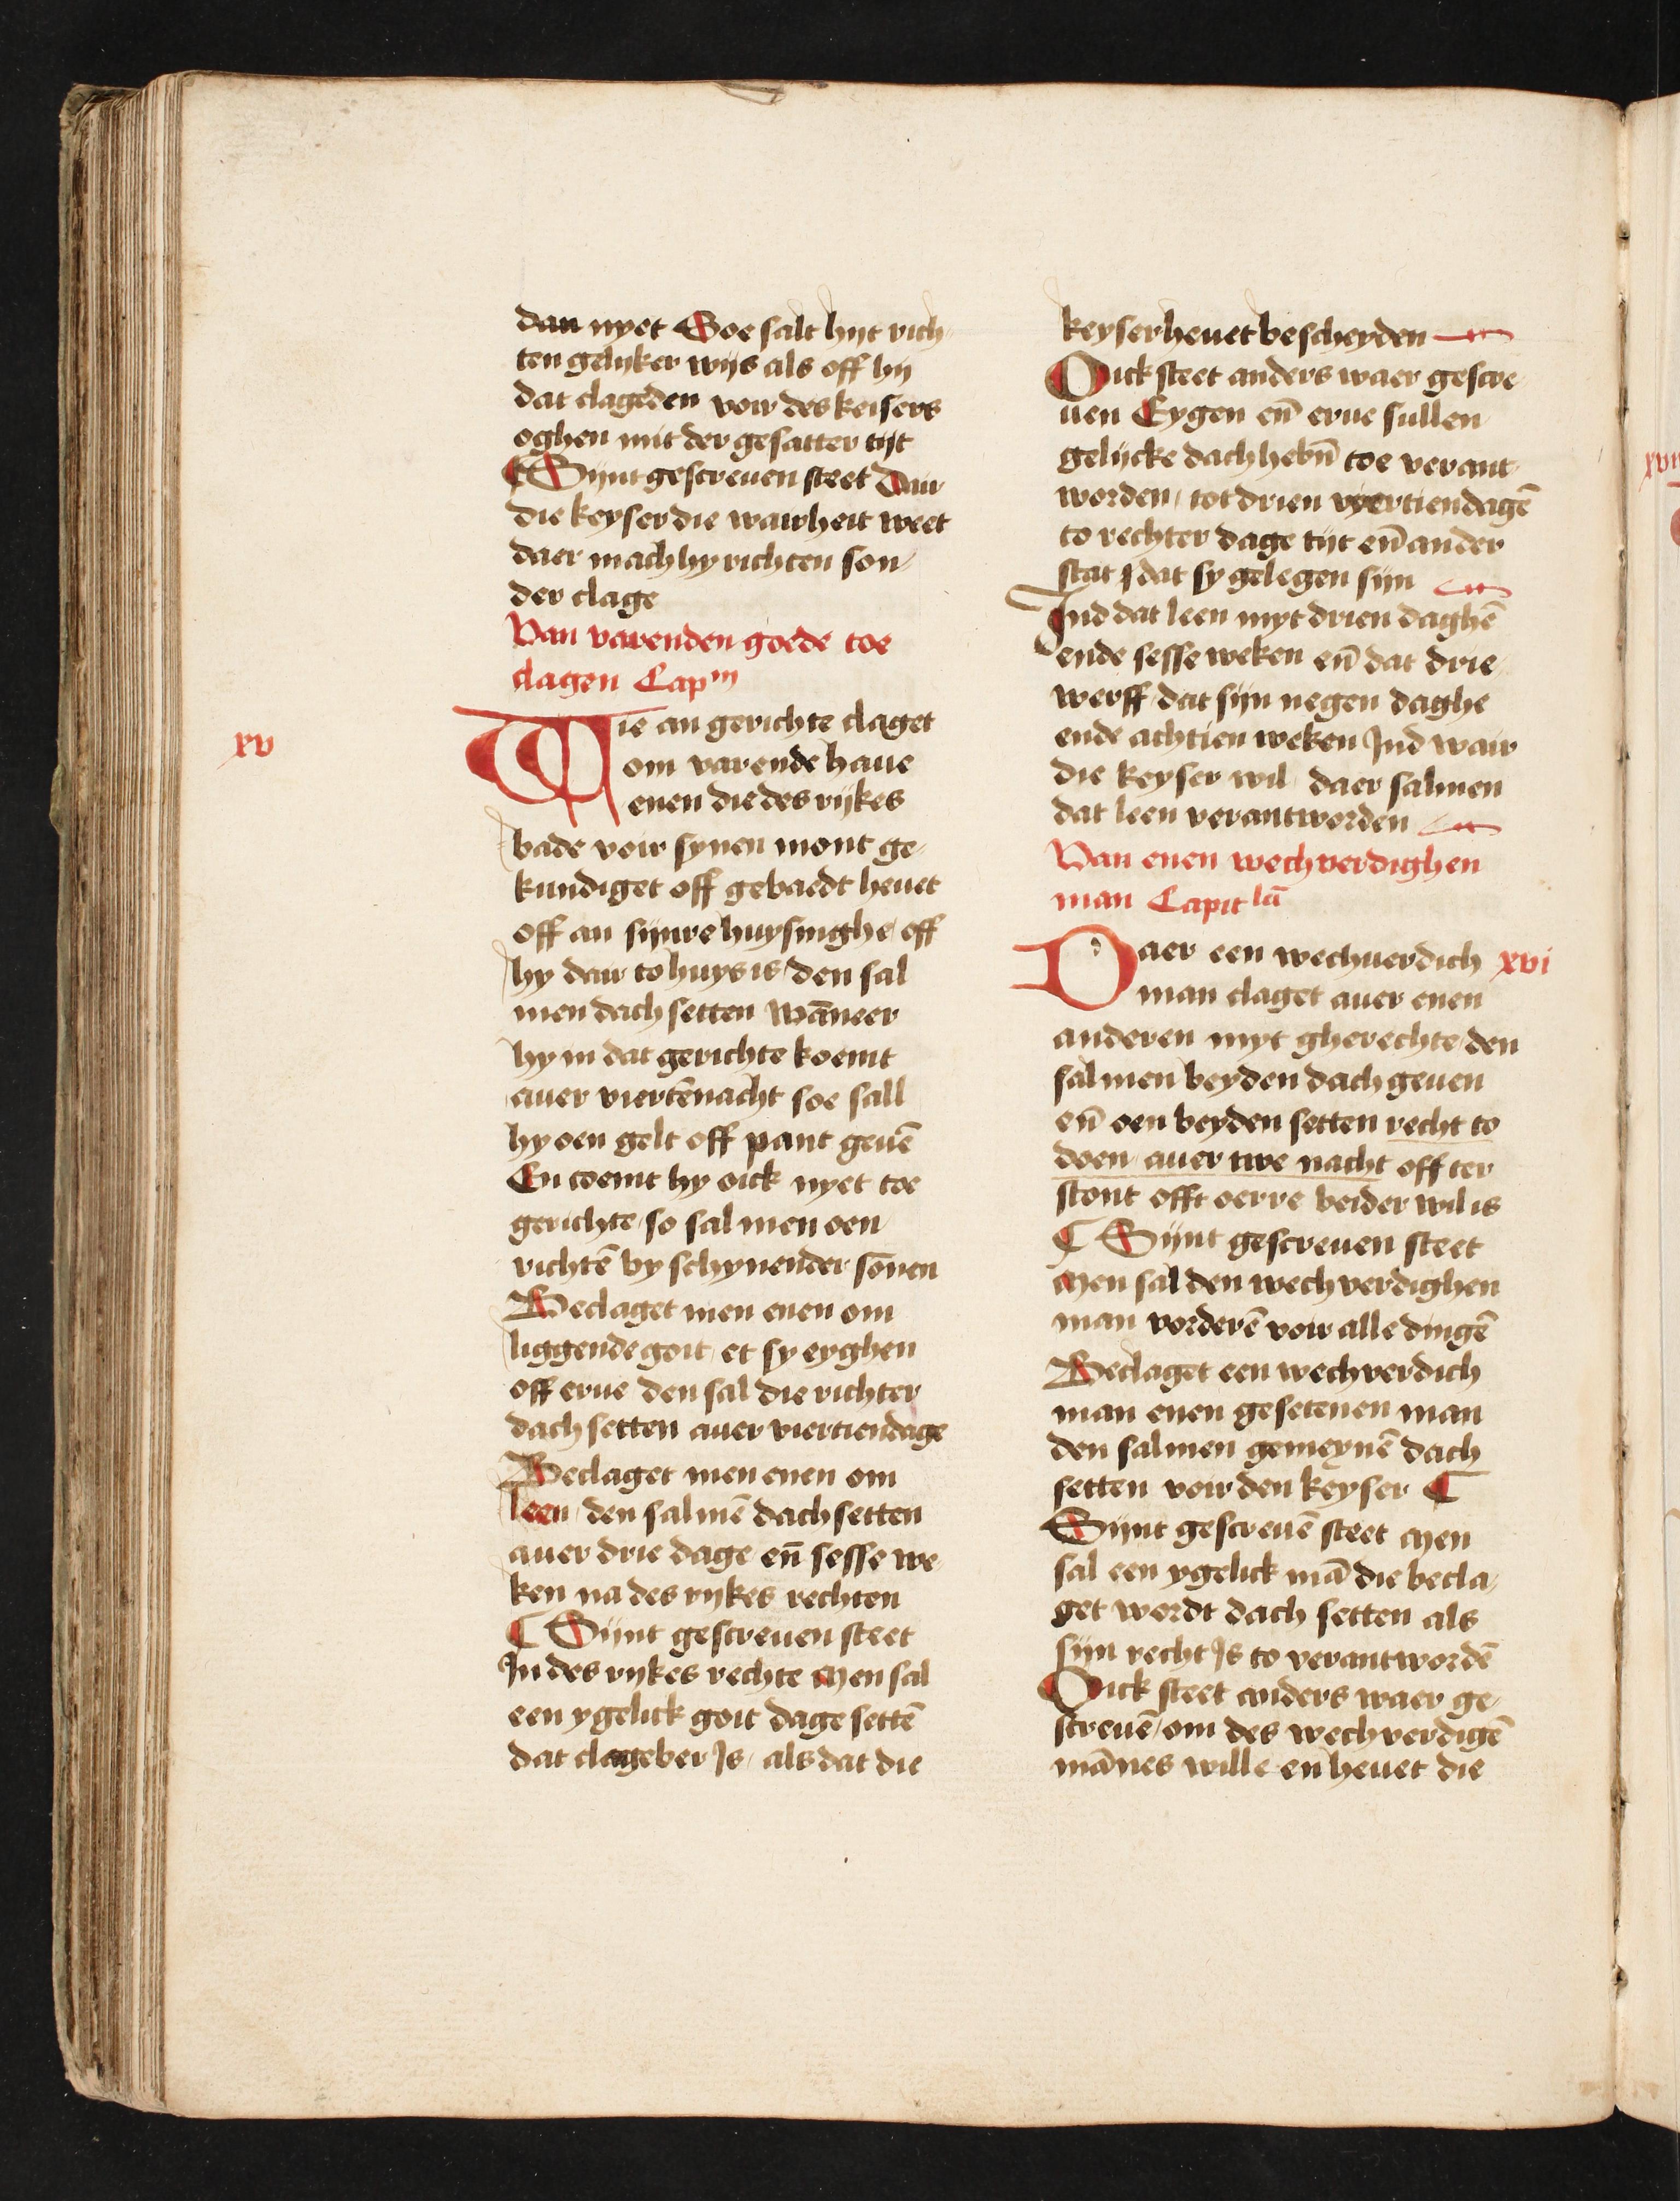 dan nyet Soe salt hyt rich-
ten gelyker wys als off hy
dat clageden voir des keisers
oghen mit der gesatter tyt
¶ Sunt gescreuen steet Dair
die keyser die wairheit weet
daer mach hy richten son-
der clage
Van varenden goede toe
clagen Capᵐ
xv
Wie an gerichte claget
om varende haue
enen die des rykes
bade voir synen mont ge-
kundiget off gebaedt heuet
off an synre huysinghe off
hy dair to huys is den sal
men dach setten wāneer
hy in dat gerichte koemt
auer viertēnacht soe sall
hy oen gelt off pant geuē
En coemt hy oick nyet toe
gerichte so sal men oen
richtē by schynender sōnen
Beclaget men enen om
liggende goit et sy eyghen
off erue den sal die richter
dach setten auer viertiendage
Beclaget men enen om
leen den sal mē dach setten
auer drie dage en̄ sesse we-
ken na des rykes rechten
¶ Sunt gescreuen steet
In des rykes rechte Men sal
een ygelick goit dage settē
dat clageber Is als dat die
keyser heuet bescheyden
Oick steet anders waer gescre-
uen Eygen en̄ erue sullen
gelycke dach hebn̄ toe verant-
worden tot drien vyertiendagē
to rechter dage tyt en̄ ander
stat Idat sy gelegen syn
Ind dat leen myt drien daghē
ende sesse weken en̄ dat drie-
werff dat syn negen daghe
ende achtien weken Ind wair
die keyser wil daer salmen
dat leen verantworden
Van enen wechverdighen
man Capitlā
Daer een wechuerdich xvi
man claget auer enen
anderen myt gherechte den
salmen beyden dach geuen
en̄ oen beyden setten recht to
doen auer twe nacht off ter
stont offt oerre beider wil is
¶ Sunt gescreuen steet
Men sal den wechverdighen
man vorderē voir alle dingē
Beclaget een wechverdich
man enen gesetenen man
den salmen gemeynē dach
setten voir den keyser ¶
Sunt gescreuē steet Men
sal een ygelick mā die becla-
get wordt dach setten als
syn recht Is to verantwordē
Oick steet anders waer ge-
screuē om des wechverdigē
mānes wille en heuet die